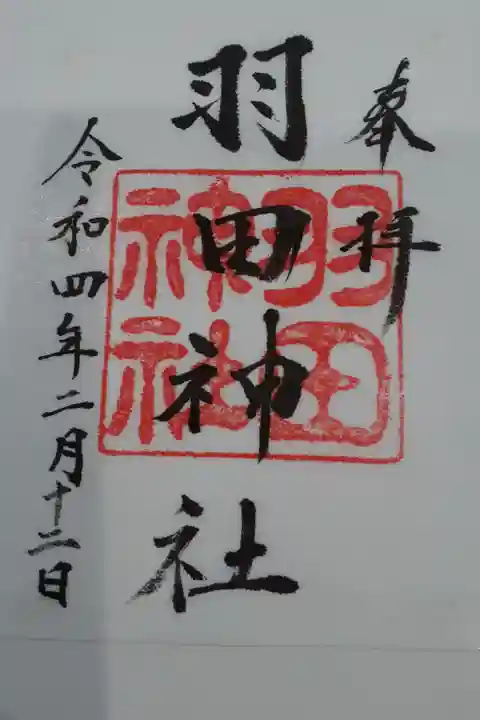 奉拝
羽田神社
羽田
神社
令和四年二月十二日